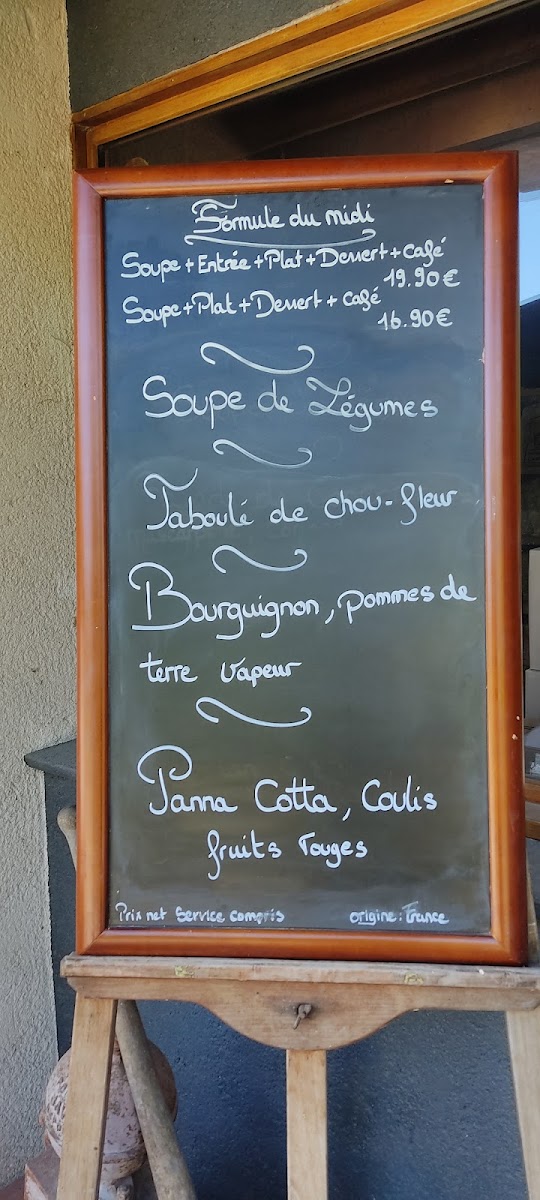 Formule du midi
Soupe + Entrée + Plat + Dessert + café
19.90€
Soupe + Plat + Dessert + café
16.90€
Soupe de Légumes
Taboulé de chou-fleur
Bourguignon, pommes de
terre vapeur
Panna Cotta, Coulis
fruits rouges
Prix net Service compris origine : France